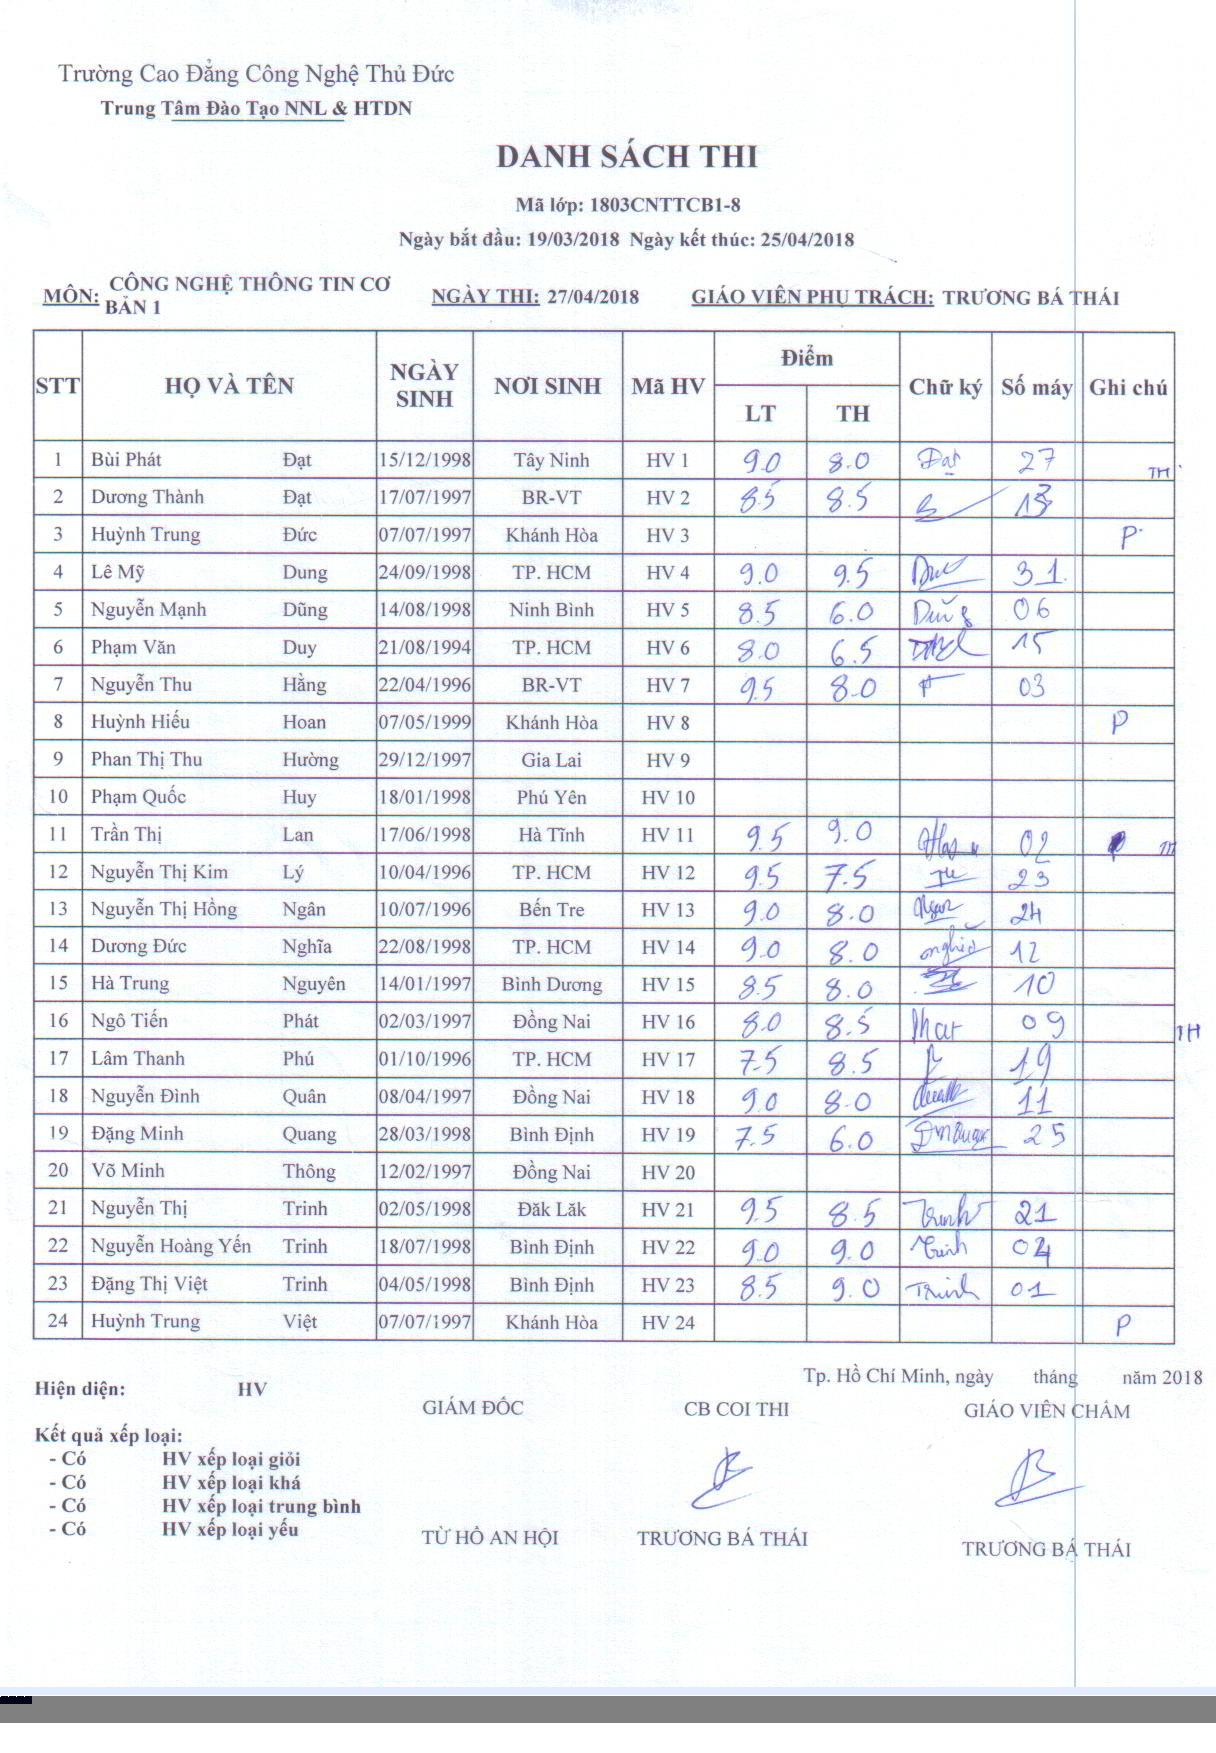 Trường Cao Đẳng Công Nghệ Thủ Đức
Trung Tâm Đào Tạo NNL & HTDN
DANH SÁCH THI
Mã lớp: 1803CNTTCB1-8
Ngày bắt đầu: 19/03/2018 Ngày kết thúc: 25/04/2018
MÔN: CÔNG NGHỆ THÔNG TIN CƠ BẢN 1 NGÀY THI: 27/04/2018 GIÁO VIÊN PHỤ TRÁCH: TRƯƠNG BÁ THÁI
STT HỌ VÀ TÊN NGÀY SINH NƠI SINH Mã HV Điểm Chữ ký Số máy Ghi chú
LT TH
1 Bùi Phát Đạt 15/12/1998 Tây Ninh HV 1 9.0 8.0 Đạt 27 TH
2 Dương Thành Đạt 17/07/1997 BR-VT HV 2 8.5 8.5 13
3 Huỳnh Trung Đức 07/07/1997 Khánh Hòa HV 3 P
4 Lê Mỹ Dung 24/09/1998 TP. HCM HV 4 9.0 9.5 31
5 Nguyễn Mạnh Dũng 14/08/1998 Ninh Bình HV 5 8.5 6.0 Dũng 06
6 Phạm Văn Duy 21/08/1994 TP. HCM HV 6 8.0 6.5 15
7 Nguyễn Thu Hằng 22/04/1996 BR-VT HV 7 9.5 8.0 03
8 Huỳnh Hiếu Hoan 07/05/1999 Khánh Hòa HV 8 P
9 Phan Thị Thu Hường 29/12/1997 Gia Lai HV 9
10 Phạm Quốc Huy 18/01/1998 Phú Yên HV 10
11 Trần Thị Lan 17/06/1998 Hà Tĩnh HV 11 9.5 9.0 02 TH
12 Nguyễn Thị Kim Lý 10/04/1996 TP. HCM HV 12 9.5 7.5 23
13 Nguyễn Thị Hồng Ngân 10/07/1996 Bến Tre HV 13 9.0 8.0 24
14 Dương Đức Nghĩa 22/08/1998 TP. HCM HV 14 9.0 8.0 nghĩa 12
15 Hà Trung Nguyên 14/01/1997 Bình Dương HV 15 8.5 8.0 10
16 Ngô Tiến Phát 02/03/1997 Đồng Nai HV 16 8.0 8.5 Phat 09 TH
17 Lâm Thanh Phú 01/10/1996 TP. HCM HV 17 7.5 8.5 19
18 Nguyễn Đình Quân 08/04/1997 Đồng Nai HV 18 9.0 8.0 11
19 Đặng Minh Quang 28/03/1998 Bình Định HV 19 7.5 6.0 25
20 Võ Minh Thông 12/02/1997 Đồng Nai HV 20
21 Nguyễn Thị Trinh 02/05/1998 Đăk Lăk HV 21 9.5 8.5 Trinh 21
22 Nguyễn Hoàng Yến Trinh 18/07/1998 Bình Định HV 22 9.0 9.0 Trinh 04
23 Đặng Thị Việt Trinh 04/05/1998 Bình Định HV 23 8.5 9.0 Trinh 01
24 Huỳnh Trung Việt 07/07/1997 Khánh Hòa HV 24 P
Tp. Hồ Chí Minh, ngày tháng năm 2018
Hiện diện: HV
GIÁM ĐỐC CB COI THI GIÁO VIÊN CHẤM
Kết quả xếp loại:
- Có HV xếp loại giỏi
- Có HV xếp loại khá
- Có HV xếp loại trung bình
- Có HV xếp loại yếu
TỪ HỒ AN HỘI TRƯƠNG BÁ THÁI TRƯƠNG BÁ THÁI